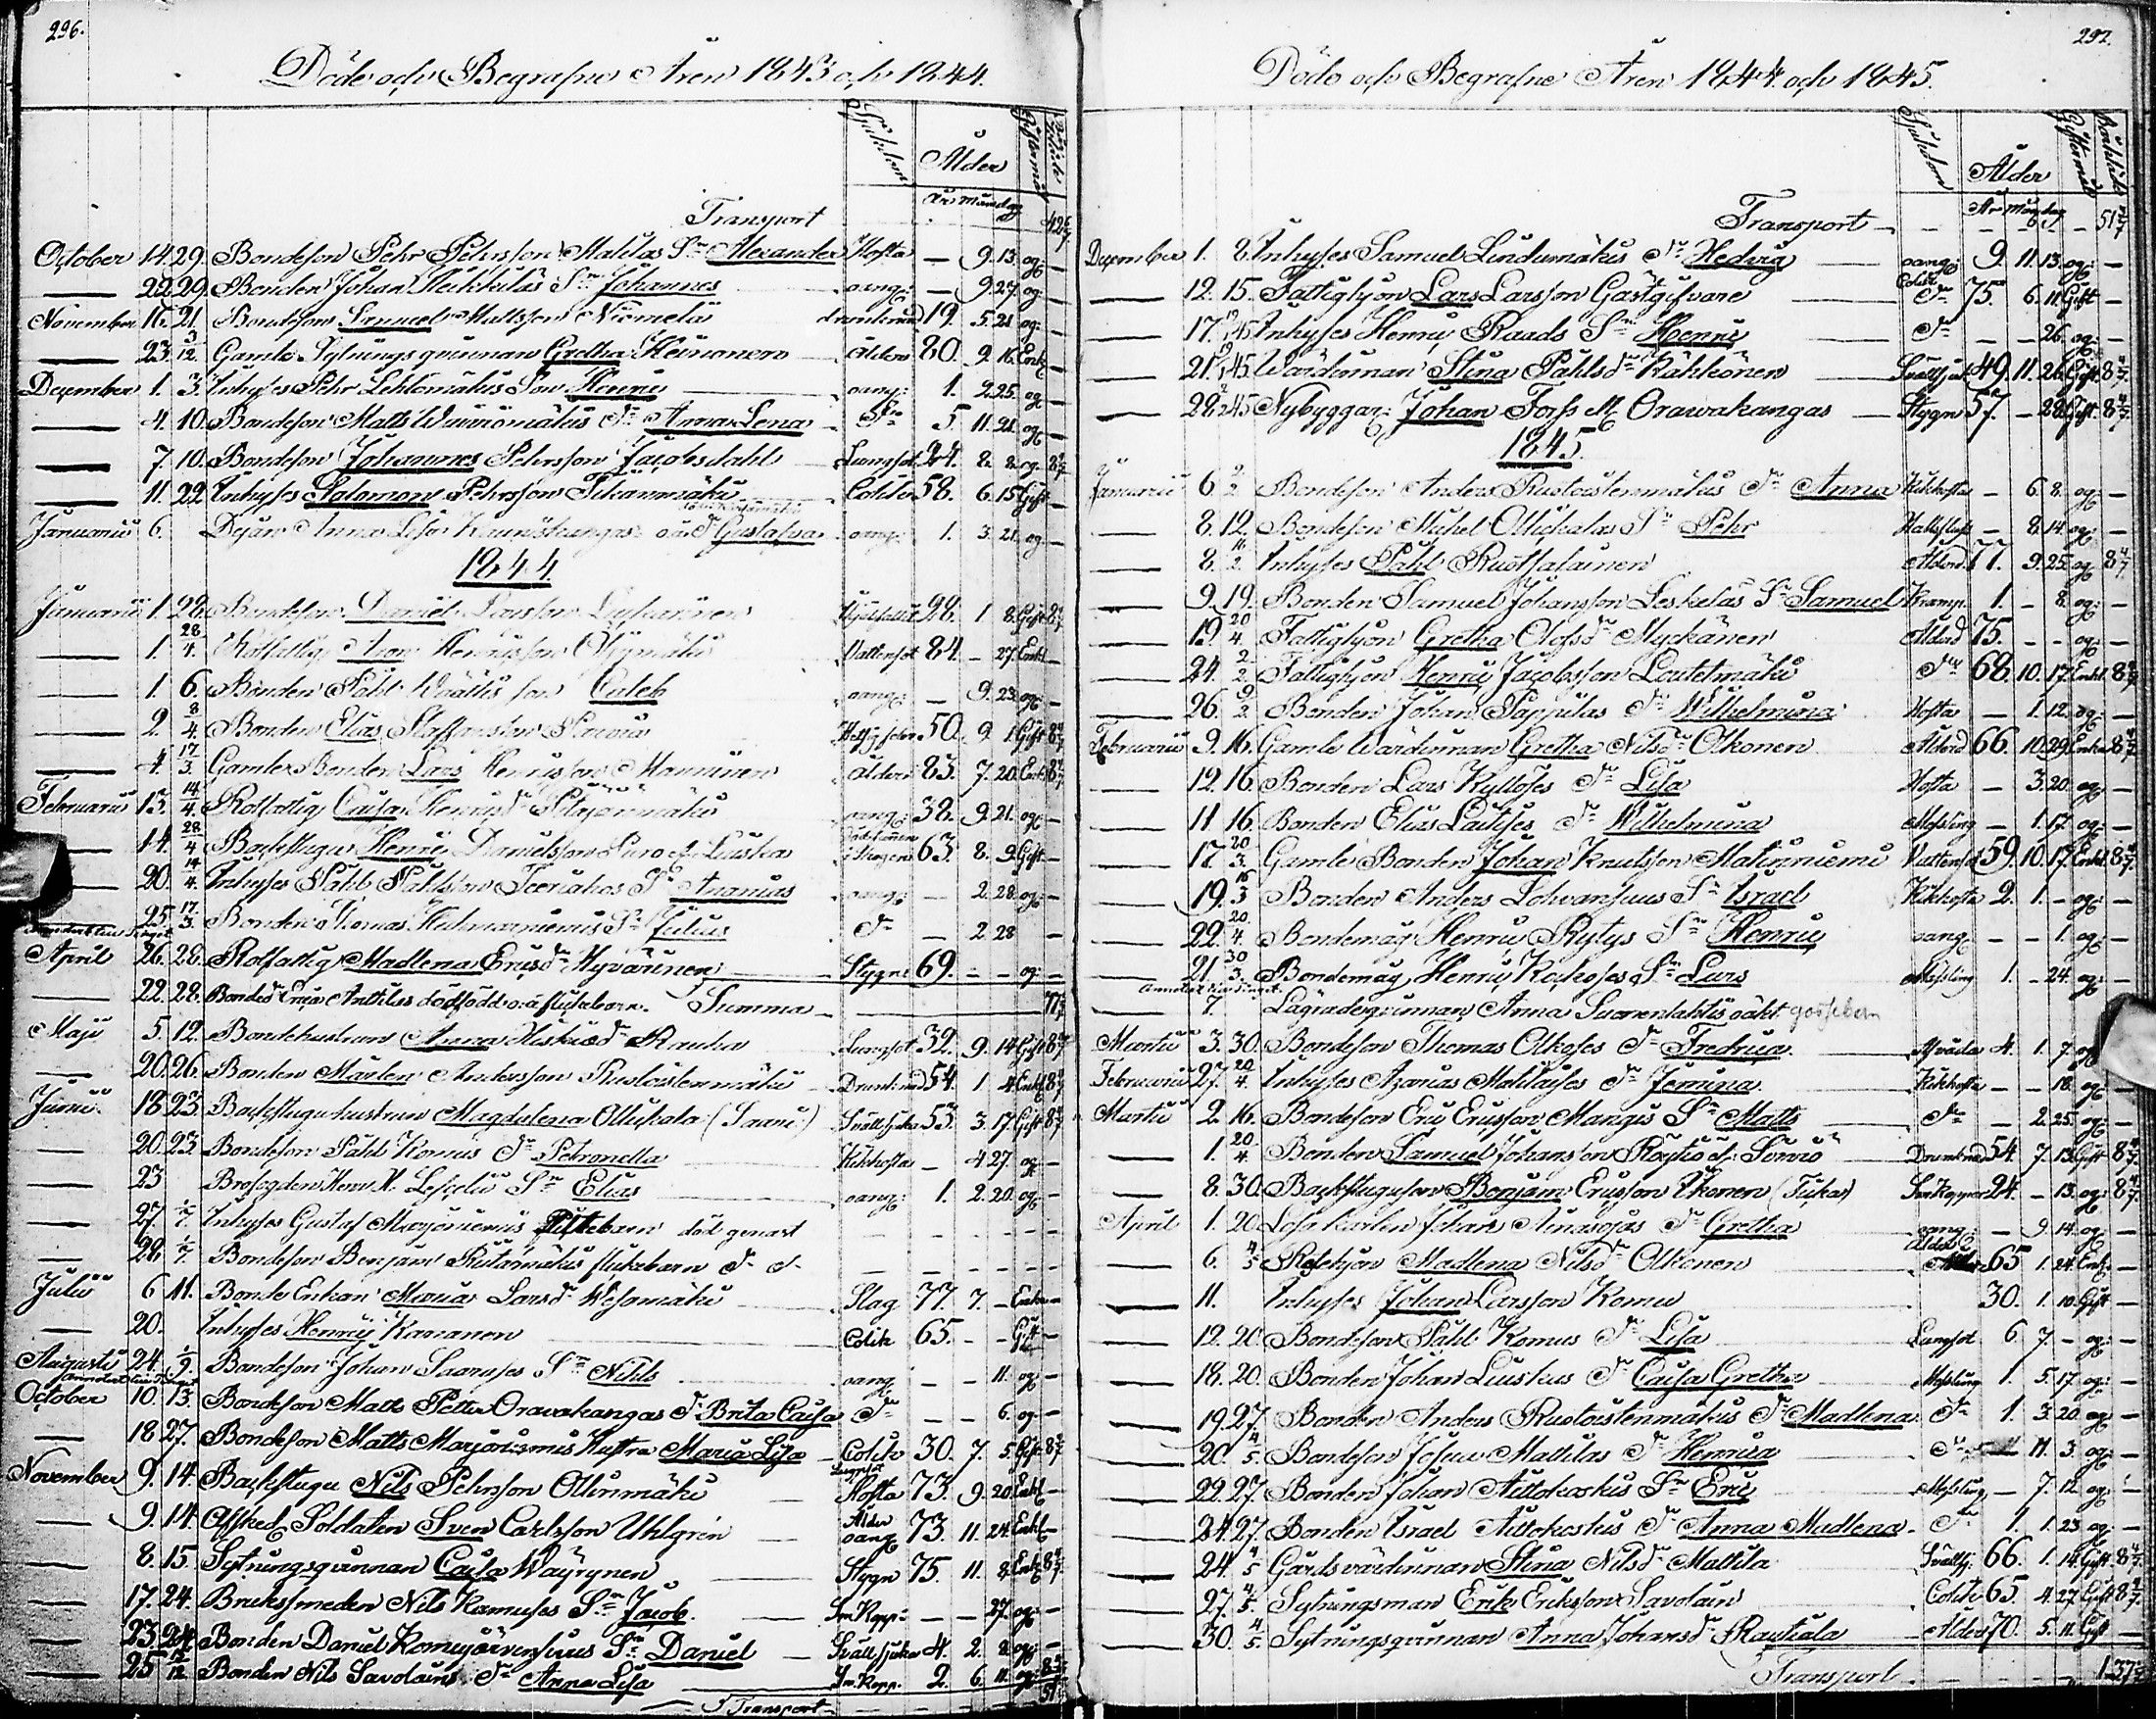 296.
Döde och Begrafne Åren 1843 och 1844.
Sjukdom Ålder
År Mån dag
Transport 42 6/7
October 14. 29. Bondeson Pehr Pehrsson Matilas Sn Alexander Hosta — 9. 13. og: —
— 22. 29. Bonden Johan Heikkiläs Sn Johannes oang: — 9. 27. og: —
November 16. 21. Bondeson Samuel Mattsson Niemelä drunknad 19. 5. 21 og: —
— 23. 3/12. Gamle Sytningsqvinnan Gretha Heinonen Ålderd. 80. 9. 16. Enk: —
December 1. 3. Inhyses Pehr Lehtomäkis Son Henric oang: 1. 2. 25. og: —
— 4. 10. Bondeson Matts Wuinomäkis Dr Anna Lena Do 5 11. 21. og: —
— 7. 10. Bondeson Johannes Pehrsson Jacobsdahl Lungsot 24. 8. 8. og: 8 4/7
— 11. 22 Inhyses Salomon Pehrsson Tihanmäki Colik 58. 6. 15 Gift —
Januarii 6. Dejan Anna Lisa Kaunistangas oä Dr Gustafva oang: 1. 3. 21. og: —
1844
Januarii 1. 28. Bondeson Daniel Larsson 28. 1 8. Gift
— 1. 28/4. Rotfattig Aron Henricsson Vattensot 84. — 27. Enkl —
— 1. 6. Bonden Påhl Wäätäis son Caleb oang: — 9. 23. og: —
— 2 8/4 Bonden Elias Staffansson 50. 9 1. Gift 8 4/7
— 4. 17/3. Gamle Bonden Lars Henricsson Manninen Ålderd: 83. 7. 20. Enkl 8 4/7
Februarii 13. 14/4. Rotfattig Caisa Henricsdr oang: 38. 9. 21. og: —
— 14. 28/4 Backstugu Henric Danielsson Puro el. Luiska 63. 8. 9. Gift —
20. 14/4. Inhyses Påhl Påhlsson Sn Ananias oang: — 2. 28. og: —
25. 17/3. Bonden Thomas Sn Julius Do — 2 28 —
April 26. 28. Rotfattig Madlena Ericsdr Hyvärinen Stygn 69. — — og: —
— 22. 28. Bonded. Caisa Anttilas dödfödd oä flickebarn. Summa — 77
Maji 5. 12. Bondehustrun Anna Hiskiasdr Rauha Lungsot 32. 9. 14 Gift 8 4/7
— 20. 26. Bonden Mårten Andersson Ruotoistenmäki Drunknad 54. 1 4. Enkl 8 4/7
Junii 18. 23. Backstuguhustrun Magdalena Ollikala (Sauni) Svältsjuka 55. 3. 17. Gift 8 4/7
— 20. 23. Bondeson Påhl Komus Dr Petronella Kikhosta — 4 27. og: —
— 23 Brofogden Herr N. Leskelä Sn Elias oang: 1. 2. 20. og: —
— 27. 1/7. Inhyses Gustaf Marjoniemis Piltebarn död genast
— 28 1/7. Bondeson Benjam flickebarn d. d.
Julii 6 11. Bonde Enkan Maria Larsdr Wesomäki Slag 77. 7. — Enka —
— 20. Inhyses Henric Kananen Colik 65. — — Gift —
Augusti 24. 1/9. Bondeson Johan Saarases Sn Nihls oang: — — 11. og: —
October 10. 13. Bondeson Matts Petter Oravakangas Dr Brita Caisa Do — — 6. og: —
— 18 27. Bondeson Matts Marjoniemis Hustru Maria Lisa Colik 30. 7. 5. Gift 8 4/7
November 9. 14. Backstugu Nils Pehrsson Ollinmäki Lungsot Hosta 73. 9. 20. Enkl —
— 9. 14. Afsked. Soldaten Sven Carlsson Uhlgrén Ålder oang 73. 11. 24. Enkl —
— 8. 15. Sytningsqvinnan Caisa Wäyrynen Stygn 75. 11. 8 Enk: 8 4/7
— 17. 24. Bruksmeden Nils Kamuses Sn Jacob. Sm. Kopp: — — 27. og: —
— 23. 24. Bonden Daniel Komujärvenjuus Sn Daniel Svältsjuka 4. 2. 2. og: —
— 25 15/12 Bonden Nils Savolains Dr Anna Lisa Sm. Kopp. 2. 6. 11. og: 8 4/7
Transport — 51
297.
Döde och Begrafne Åren 1844. och 1845.
Sjukdom Ålder
År Mån dag
Transport 51
December 1. 8. Inhyses Samuel Lindumäkis Dr Hedvig oang: 9. 11. 13. og: —
— 12. 15. Fattighjon Lars Larsson Gästgifvare Colik Do 75. 6. 11. Gift —
— 17. Inhyses Henric Raads Sn Henric Do — — 26. og: —
— 21. Wärdinnan Stina Påhlsdr Kähkönen Svältsjuk 49. 11. 26. Gift 8 4/7
— 28. Nybyggar: Johan Forss el. Orawakangas Stygn 57. — 28. Gift 8 4/7
1845.
Januarii 6 2/2 Bondeson Anders Ruotoistenmäkis Dr Anna Kikhosta — 6. 8. og: —
— 8. 12. Bondeson Michel Ollikalas Sn Pehr Halsfluss — 8. 14. og: —
— 8. 16/2. Inhyses Påhl Ruotsalainen Ålderd. 77. 9. 25. og: 8 4/7
— 9. 19. Bonden Samuel Johansson Leskeläs Sn Samuel Kramp. 1. — 8. og: —
— 19. 20/4. Fattighjon Gretha Olofsdr Myckänen Ålderd 75. — — og: —
— 24. 2/2 Fattighjon Henric Jacobsson Loutelmäki Do 68. 10. 17. Enkl 8 4/7
— 26. 9/2 Bonden Johan Pappilas Dr Wilhelmina Hosta — 1. 12. og: —
Februarii 9. 16. Gamle Wärdinnan Gretha Nilsdr Olkonen Ålderd 66. 10. 29. Enka 8 4/7
— 12. 16. Bonden Lars Kyllöses Dr Lisa Hosta — 3. 20. og: —
— 11 16. Bonden Elias Laitises Dr Wilhelmina Messling — 1. 17. og: —
— 17. 20/3. Gamle Bonden Johan Knutsson Matinniemi Vattensot 59. 10. 17. Enkl 8 4/7.
— 19. 16/3 Bonden Anders Lohvansuus Sn Israel Kikhosta 2. 1. — og: —
— 22. 20/4. Bondemåg Henric Rytys Sn Henric oang: — — 1. og: —
— 21. 30/3. Bondemåg Henric Kaikoses Sn Lars Messling 1. — 24. og: —
— 7. Lägradeqvinnan Anna Suorenlahtis oäkt gossebarn
Martii 3. 30. Bondeson Thomas Olkoses Dr Fredrica 4. 1. 7. og: —
Februarii 27. 20/4. Inhyses Azarias Matilaises Dr Jemina Kikhosta — — 18. og: —
Martii 2. 16. Bondeson Eric Ericsson Mangis Sn Matts Do — 2. 25. og: —
— 1. 20/4 Bonden Samuel Johansson Röytiö el. Sorvio Drunknad 54. 7. 13. Gift 8 4/7
— 8. 30. Backstuguson Benjam Ericsson Ikonen (Tuikas) Sm Koppor 24. — 13. og: 8 4/7
April 1. 20. Loskarlen Johan Ainasojas Dr Gretha oang: — 9. 14. og: —
— 6. 4/5 Rotehjon Madlena Nilsdr Olkonen Ålderd 65 1. 24. Enk: —
— 11. Inhyses Johan Larsson Komu 30. 1. 10. Gift —
— 12. 20. Bondeson Påhl Komus Dr Lisa Lungsot 6 7. — og: —
— 18. 20. Bonden Johan Luiskus Dr Caisa Gretha Messling 1. 5. 17. og: —
— 19. 27. Bonden Anders Ruotoistenmäkis Dr Madlena Do 1. 3. 20. og: —
— 20. 4/5. Bondeson Josua Mattilas Dr Henrica Do — 11. 3. og: —
— 22. 27. Bonden Johan Aittokoskis Sn Eric Messling — 7. 12. og: —
— 24. 27. Bonden Israel Aittokoskis Dr Anna Madlena Do 1. 1. 23 og: —
— 24. 4/5 Gårdsvärdinnan Stina Nilsdr Mattila Svältsj. 66. 1. 14. Gift 8 4/7
— 27. 4/5. Sytningsman Erik Eriksson Savolain Colik 65. 4. 27. Gift 8 4/7
— 30. 4/5. Sytningsqvinnan Anna Johansdr Rautiala Ålderd 70. 5. 11. Gift —
Transport — 137